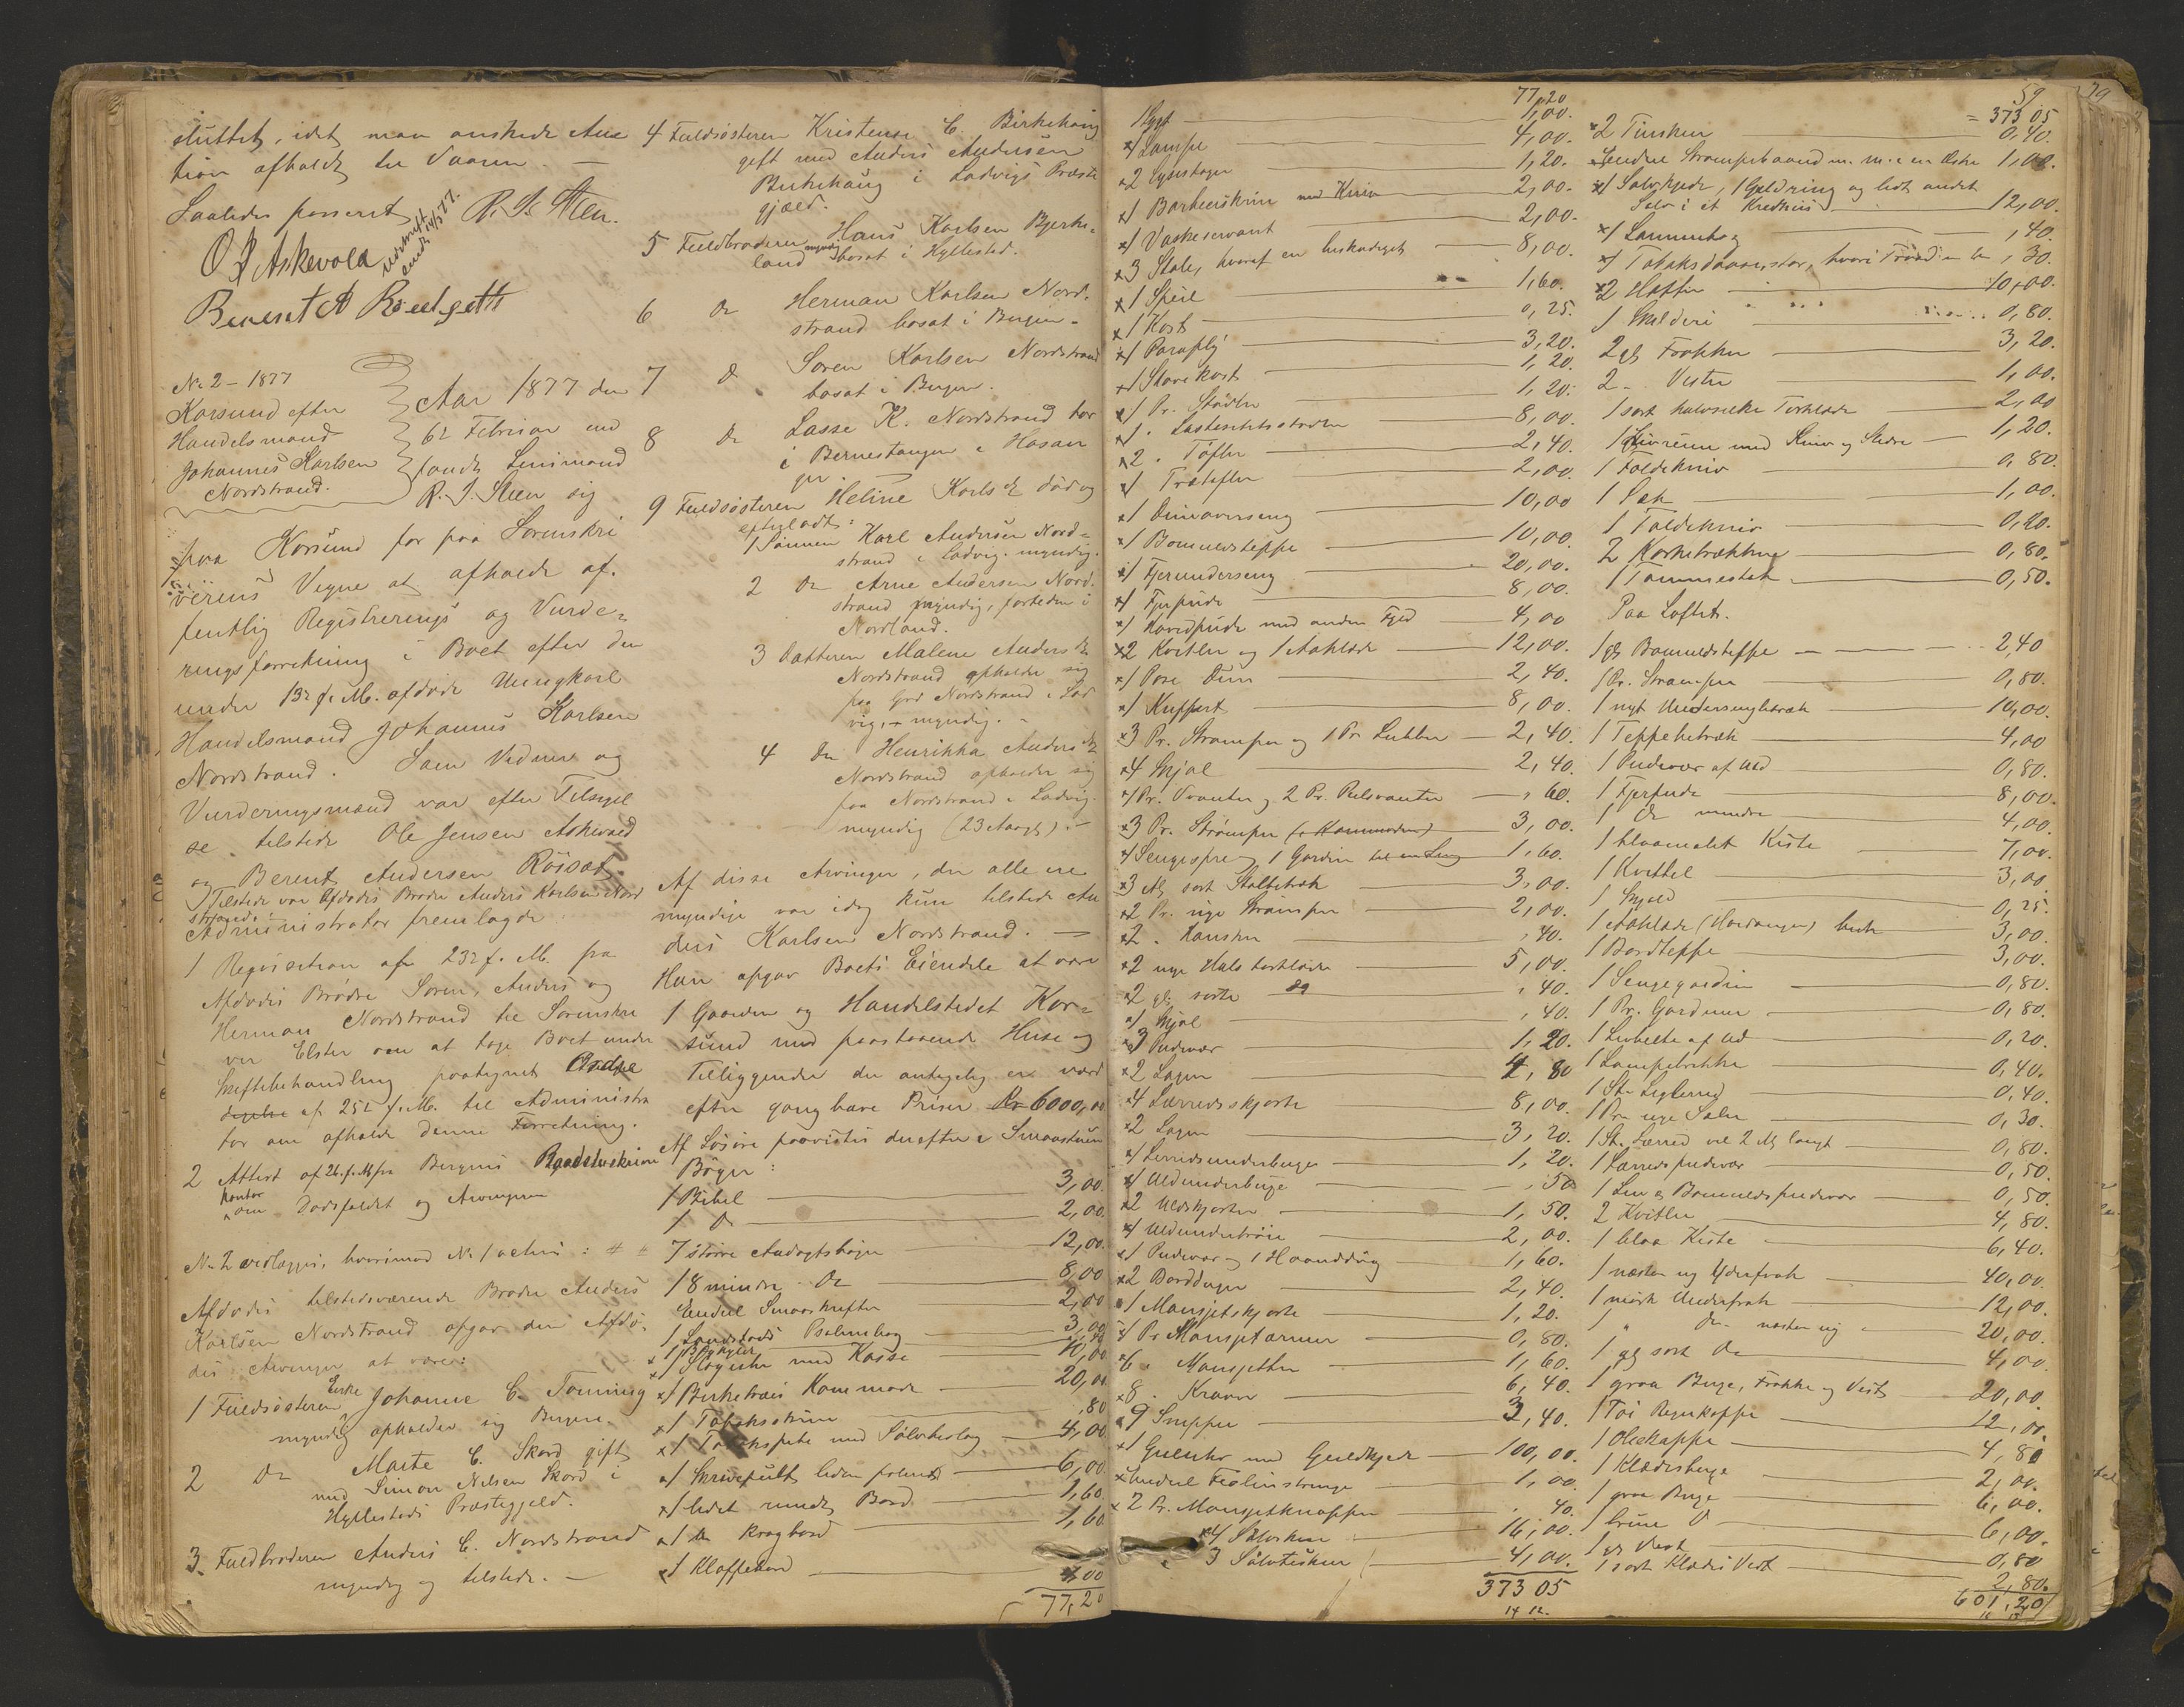 sluttet, idet man ønskede Auc
tion afholdt til Vaaren. —
Saaledes passeret
R. J. Steen.
O J Askevold
Udskrift
Berent A Røeelsett
No 2 – 1877
Korsund efter
Handelsmand
Johannes Karlsen
Nordstrand.
Aar 1877 den
6te Februar ind
fandt Lensmand
R. J. Steen sig
paa Korsund for paa Sorenskri
verens Vegne at afholde of-
fentlig Registrerings og Vurde-
ringsforretning i Boet efter den
under 13de f. M. afdøde Ungkarl
Handelsmand Johannes Karlsen
Nordstrand. Som Vidner og
Vurderingsmænd var efter Tilsigel
se tilstede Ole Jensen Askevold
og Berent Andersen Röisæt.
Tilstede var Afdødes Broder Anders Karlsen Nord
strand.
Administrator fremlagde
1 Reqvisition af 23de f. M. fra
Afdødes Brødre Søren, Anders og
Herman Nordstrand til Sorenskri
ver Elster om at tage Boet under
Skiftebehandling paategnet
af 25de f. M. til Administra
tor om afholde denne Forretning.
2 Attest af 26 f. M. fra Bergens Raadstueskriver
kontor
om Dødsfaldet og Arvingerne
No 2 vedlægges, hvorimod No 1 acteres:
Afdødes tilstedeværende Broder Anders
Karlsen Nordstrand opgav den Afdø-
des Arvinger at være:
1 Fuldsøsteren Enke Johanne C. Tonning
myndig opholder sig Bergen.
2 Do Marte C. Skord gift
med Simon Nilsen Skord i
Hyllestads Præstegjeld.
3 Fuldbroderen Anders C. Nordstrand
myndig og tilstede. —
4 Fuldsøsteren Kristense C. Birkehaug
gift med Anders Andersen
Birkehaug i Ladvigs Præste
gjæld.
5 Fuldbroderen Hans Karlsen Bjerke-
land myndig bosat i Hyllestad.
6 Do Herman Karlsen Nord-
strand bosat i Bergen.
7 Do Søren Karlsen Nordstrand
bosat i Bergen.
8 Do Lasse K. Nordstrand bor
i Bernestangen i Hosan
ger.
9 Fuldsøsteren Heline Karlsdtr død og
efterladt:
1 Sønnen Karl Andersen Nord-
strand i Ladvig. myndig.
2 Do Arne Andersen Nord-
strand myndig, forteden i
Nordland.
3 Datteren Malene Andersdtr
Nordstrand opholder sig
paa Grd Nordstrand i Lad
vig, – myndig. –
4 Do Henrikka Andersdtr
Nordstrand opholder sig
paa Nordstrand i Ladvig.
myndig (23 Aar gl). –
Af disse Arvinger, der alle ere
myndige var idag kun tilstede An
ders Karlsen Nordstrand. —
Han opgav Boets Eiendele at være
1 Gaarden og Handelstedet Kor-
sund med paastaaende Huse og
Tilliggender der antagelig er værd
efter gangbare Priser Kr 6000,00
Af Løsøre paavistes derefter i Smaastuen
Bøger:
1 Bibel 3,00.
1 Do 2,00.
7 større Andagtsbøger 12,00.
18 mindre Do 8,00
Endel Smaaskrifter 2,00
1 Landstads Psalmebog 3,00
x 1 Slaguhr med Kasse 10,00
x 1 Birketræs Kommode 20,00
x 1 Tobaksskrin ,80
x 1 Tobakspibe med Sølvbeslag 4,00
x 1 Skrivepult, liden 6,00
x 1 lidet rundt Bord 1,60
x 1 Do Kragbord 1,60
x 1 Klappebord 00
77,20
77,20
1 Lygt 1,00.
x 1 Lampe 4,00.
x 2 Lysestager 1,20.
x 1 Barbeerskrin med Kniv 2,00.
x 1 Vaskeservant 2,00.
x 3 Stole, hvoraf en beskadiget 8,00.
x 1 Speil 1,60.
x 1 Kost 0,25.
x 1 Paraply 3,20.
x 1 Stovekost 1,20.
x 1 Pr. Støvler 1,20.
x 1 8,00.
x 2 . Tøfler 2,40.
x 1 Trætøfler 2,00.
x 1 Dunoverseng 10,00
x 1 Bomuldsteppe 10,00.
x 1 Fjerunderseng 20,00.
x 1 Fjerpude 8,00.
x 1 Hovedpude med anden Fyld 4,00
x 2 Kvitler og 1 Aaklæde 12,00.
x 1 Pose Dun 2,40.
x 1 Kuffert 8,00.
x 3 Pr. Strømper og 1 Pr. Lukker 2,40.
x 4 Skjol 2,40.
x 1 Pr. Vanter og 2 Pr. Pulsvanter , 60.
x 3 Pr. Strømper (i Kommoden) 3,00.
x 1 Sengespre og 1 Gardin til en Seng 1,60.
x 3 Al. sort Stoltetræk 3,00.
x 2 Pr. nye Strømper 2,00.
x 2 . Hansker , 40.
x 2 nye Halstørklæder 5,00.
x 2 gl. sorte do , 40.
x 1 Skjol , 40.
x 3 Pudevær 1,20.
x 2 Lagen 4,80
x 4 Lærredsskjorte 8,00.
x 2 Lagen 3,20.
x 1 Lerredsunderbuxe 1,20.
x 1 Uldunderbuxe , 50
x 2 Uldskjorter 1,50.
x 1 Uldundertrøie 2,00.
x 1 Pudevar og 1 Haanddug 1,60.
x 2 Bordduger 2,40.
x 1 Mansjetskjorte 1,20.
x 1 Pr Mansjetærmer 0,80.
x 6 . Mansjetter 1,60.
x 8 . Kraver 6,40.
x 9 Snipper 3,40.
x 1 Gulduhr med Guldkjede 100,00.
x Endel Fiolinstrenge 1,00.
x 2 Pr. Mansjetknapper , 40.
x 4 Sølvskeer 16,00.
x 3 Sølvteskeer 4,00.
373 05
59
= 373 05
x 2 Tinskeer 0,40.
x Endel Strømpebaand m. m. i en Æske 1,00.
x 1 Sølvkjede, 1 Guldring og lidt andet
Sølv i et Kridthus 12,00.
x 1 Lommebog ,40.
x 1 Tobaksdaaseskar, hvori Traad m. m. ,30.
x 2 Hatter 10,00.
1 Skilderi 0,80.
2 gl Frakker 3,20.
2 – Vester 1,00.
1 sort halvsilke Tørklæde 2,00
1 Livreim med Kniv og Slidre 1,20.
1 Foldekniv 0,80.
1 Sæk 1,00.
1 Foldekniv 0,20.
2 Korketrækkere 0,80.
1 Tommestok 0,50.
Paa Loftet.
1 gl Bomuldsteppe 2,40
1 Pr. Strømper 0,80.
1 nyt Undersengtræk 10,00.
1 Teppebetræk 4,00
1 Pudevær af Uld 0,80.
1 Fjerpude 8,00.
1 Do mindre 4,00.
1 blaamalet Kiste 7,00.
1 Kvittel 3,00.
1 Skjold 0,25.
1 Aaklæde (Hardanger) brede 3,00.
1 Bordteppe 3,00.
1 Sengegardin 0,80.
1 Pr. Gardiner 0,80.
1 Livbelte af Uld 0,20.
1 Lampebrikke 0,40.
1 St. Seglered 0,40.
1 Pr. nye Saaler 0,30.
1 St. Lærred vel 2 Al. langt 0,80.
1 Lærredspudevær 0,50.
1 Lin og Bomuldspudevar 0,50.
2 Kvitler 4,80.
1 blaa Kiste 6,40.
1 næsten ny Yderfrak 40,00
1 mørk Underfrak 12,00.
1 " do næsten ny 20,00.
1 gl sort Do 4,00.
1 graa Buxe, Frakke og Vest 20,00.
1 Tøi Regnkappe 12,00.
1 Oliekappe 4,80
1 Klædesbuxe 2,00.
1 graa Buxe 6,00.
1 brun D 6,00.
1 gl Vest 0,80
1 sort Klædes Vest 2,80.
601,20